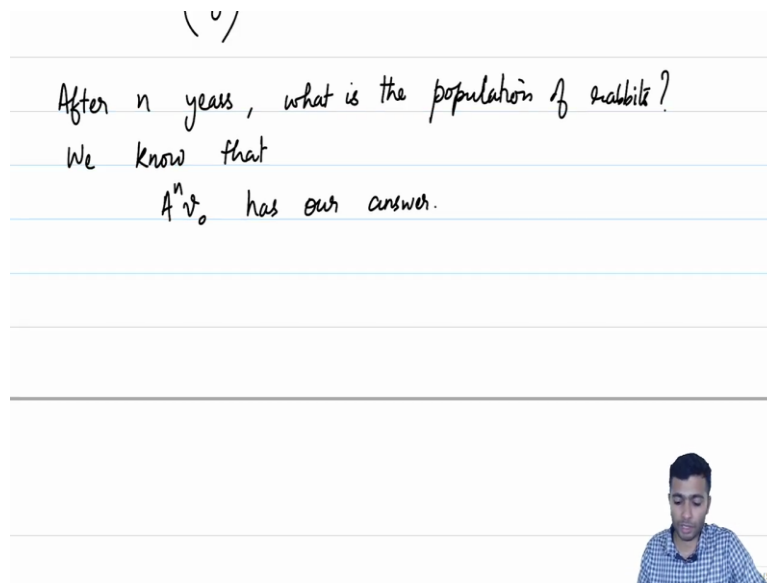 After n years, what is the population of rabbits?
We know that
Aⁿv₀ has our answer.